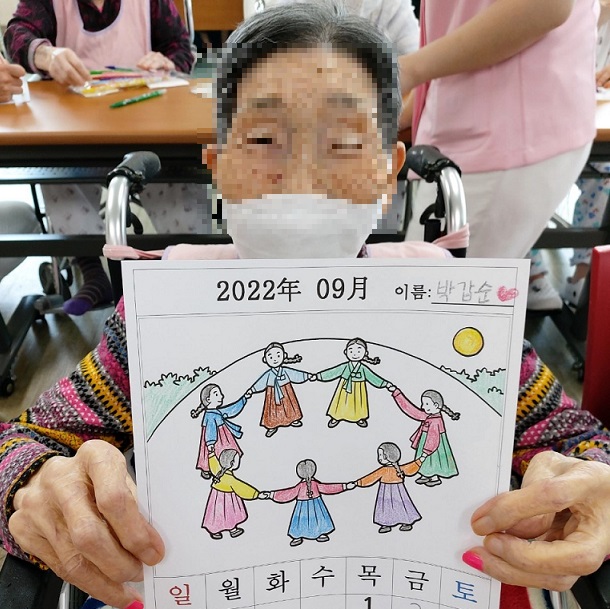 2022年 09月 이름: 박갑순
일 월 화 수 목 금 토
1 2